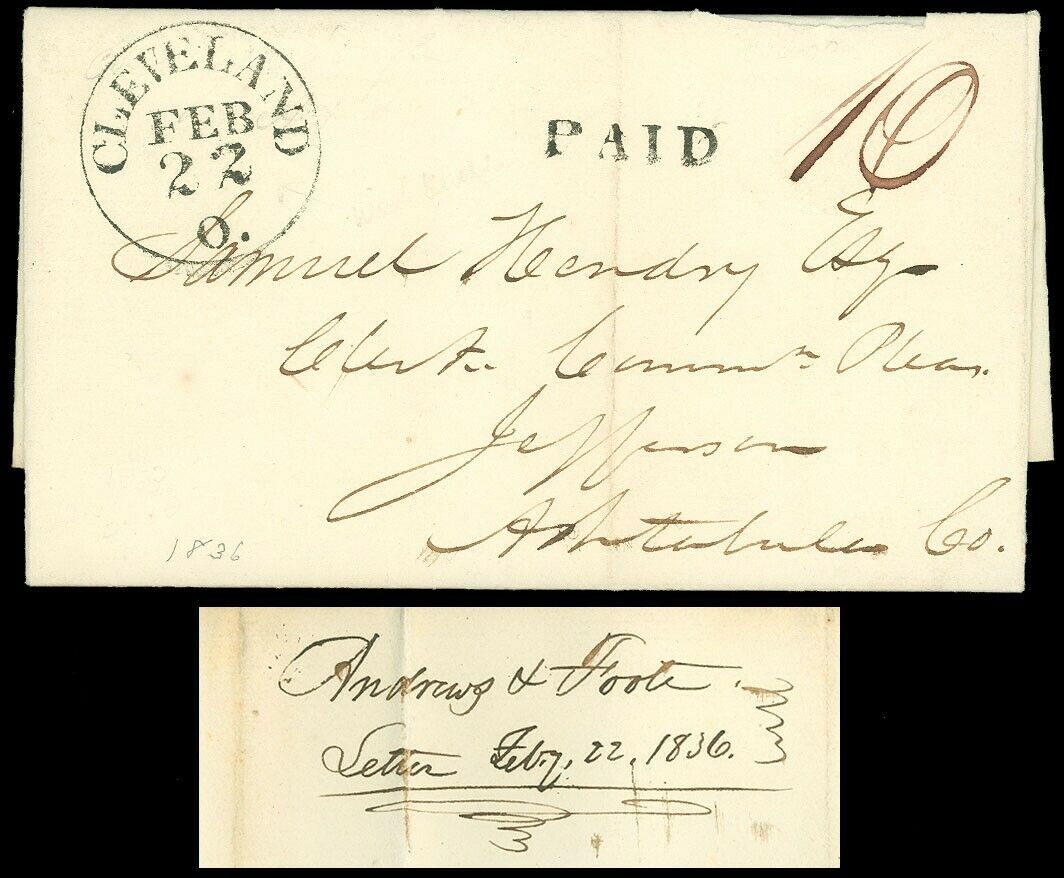 CLEVELAND
FEB
22
O.
PAID
10
Samuel Hendry Esq
Clerk Commn Pleas.
Jefferson
Ashtabula Co.
1836
Andrews & Foote.
Letter Feby. 22. 1836.